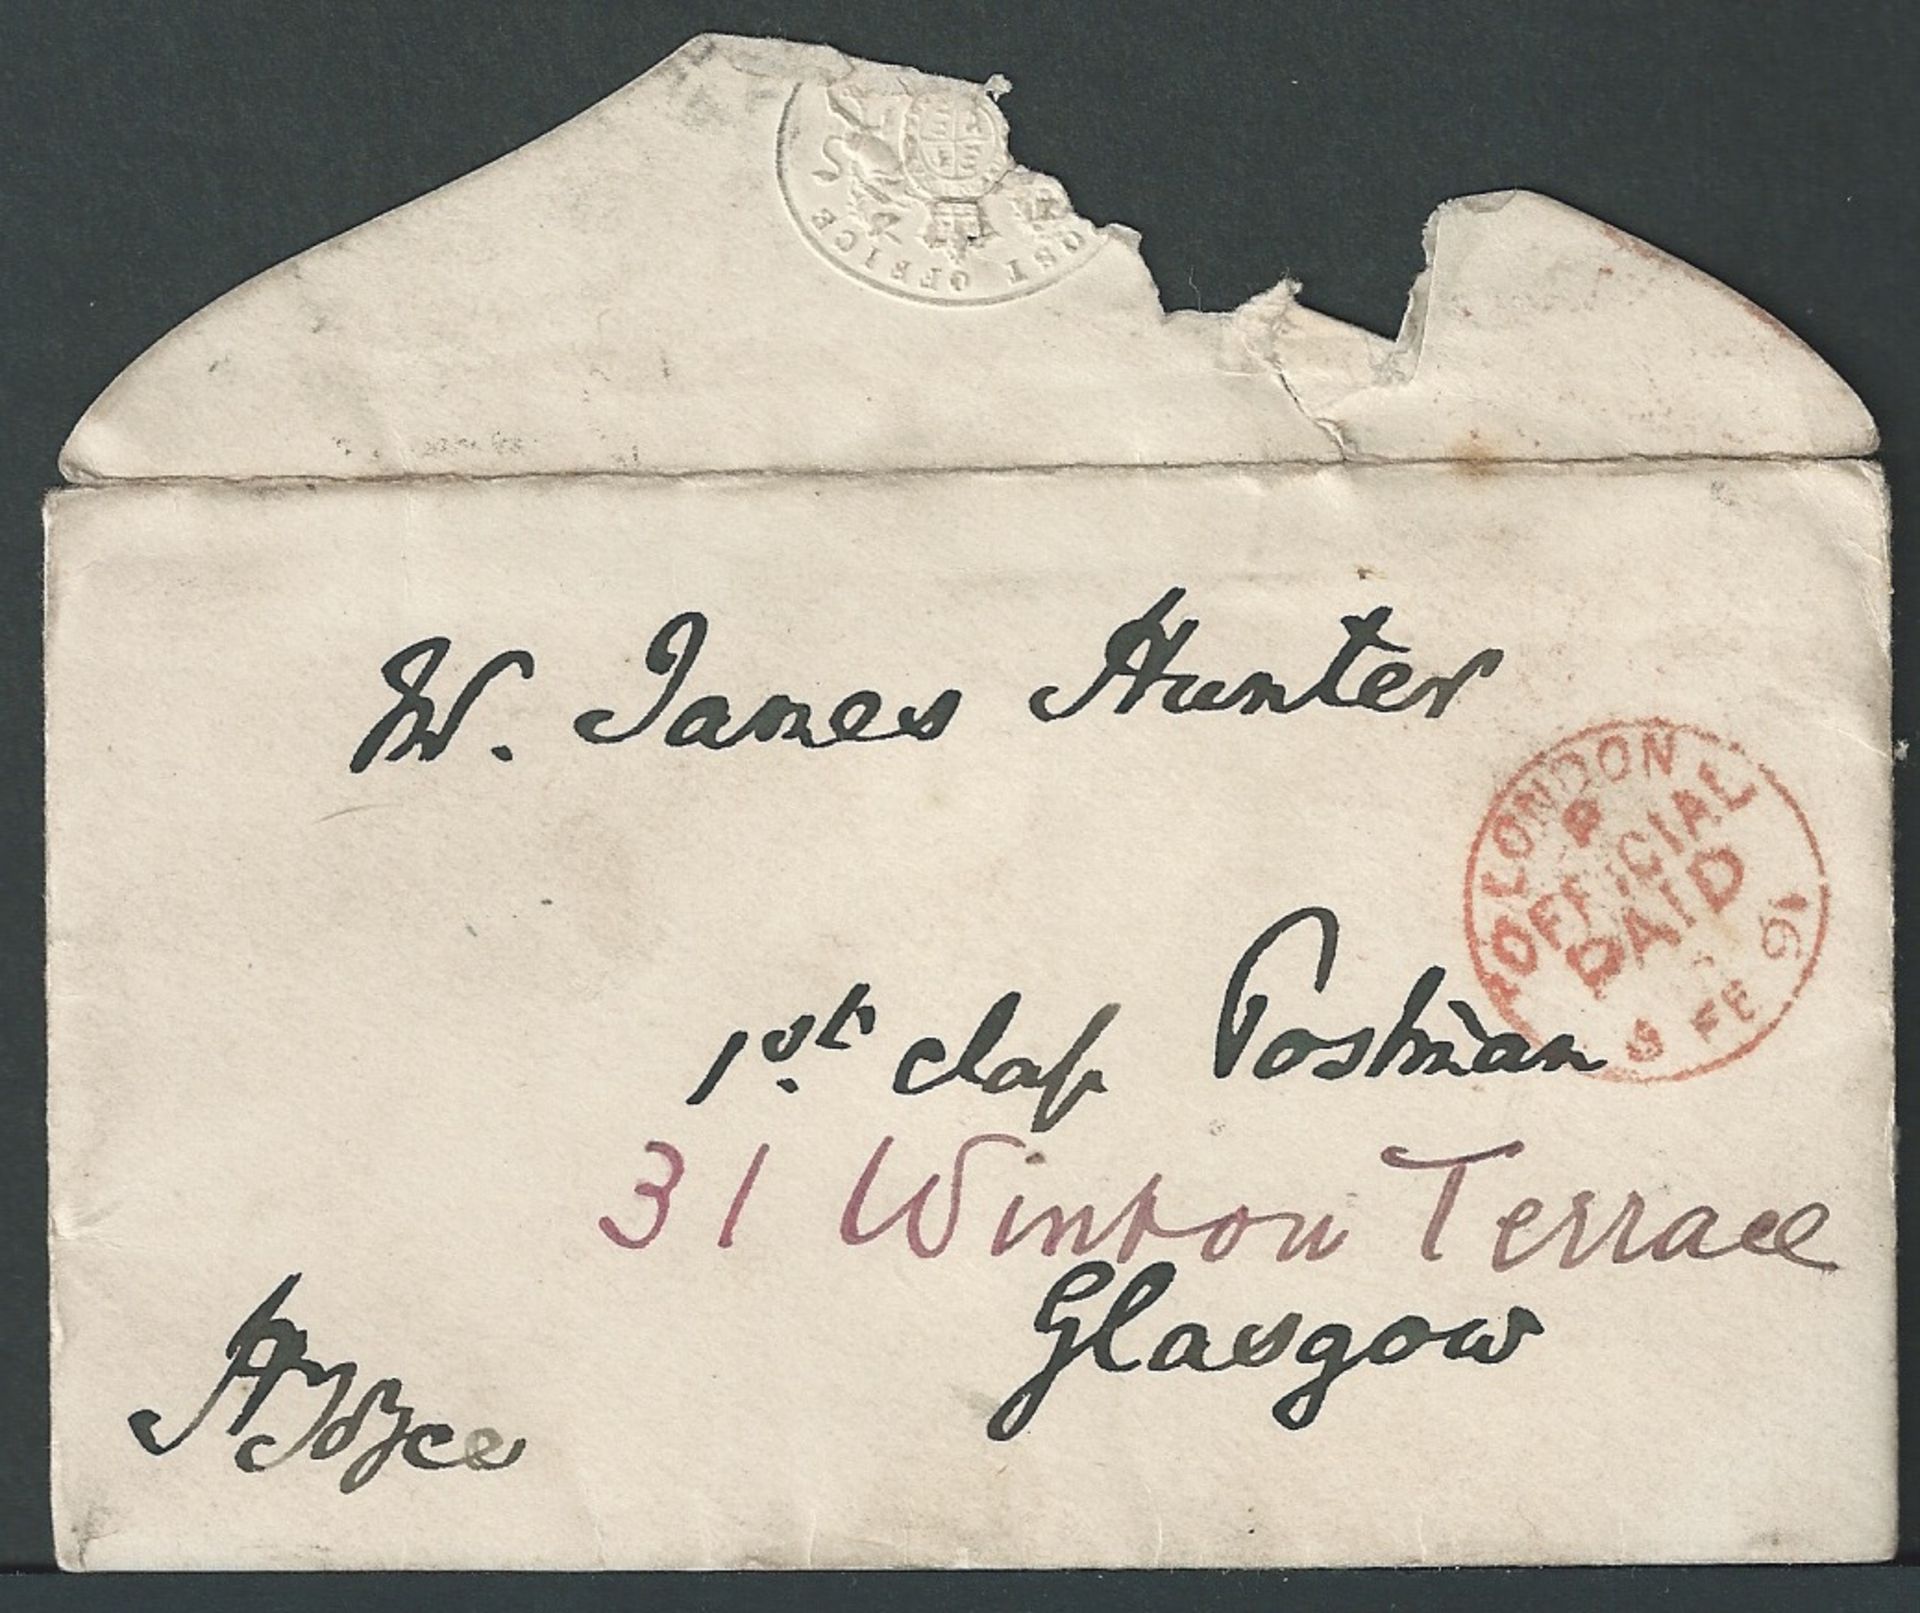 POST OFFICE
Mr. James Hunter
LONDON
OFFICIAL
PAID
FE 91
1st. class Postman
31 Winton Terrace
Glasgow